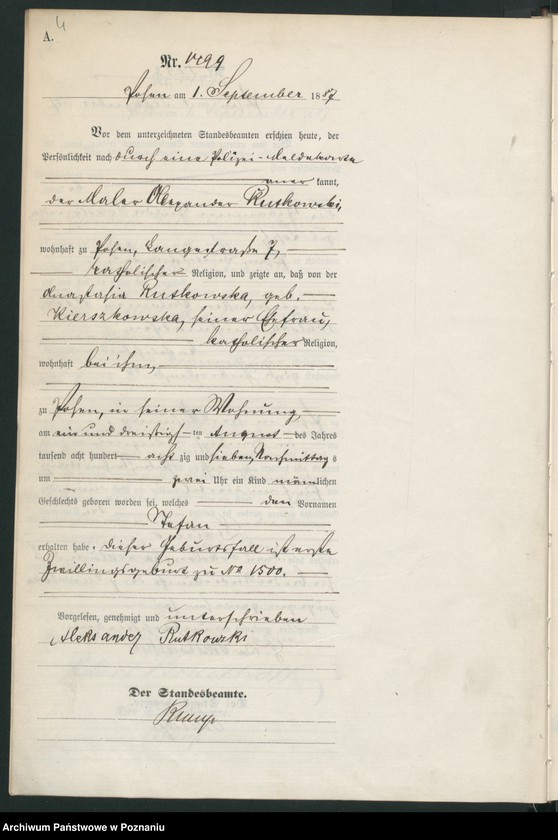 A. 4
Nr. 1499
Posen am 1. September 1887
Vor dem unterzeichneten Standesbeamten erschien heute, der
Persönlichkeit nach durch eine Polizei-Meldekarte
aner kannt,
der Maler Alexander Rutkowski,
wohnhaft zu Posen, Langestraße 7,
katholischer Religion, und zeigte an, daß von der
Anastasia Rutkowska, geb.
Kierszkowska, seiner Ehefrau,
katholischer Religion,
wohnhaft bei ihm,
zu Posen, in seiner Wohnung
am ein und dreißigsten August des Jahres
tausend acht hundert acht zig und sieben, Nachmittag s
um zwei Uhr ein Kind männlichen
Geschlechts geboren worden sei, welches den Vornamen
Stefan
erhalten habe. Dieser Geburtsfall ist erste
Zwillingsgeburt zu No 1500.
Vorgelesen, genehmigt und unterschrieben
Aleksander Rutkowski
Der Standesbeamte.
Archiwum Państwowe w Poznaniu